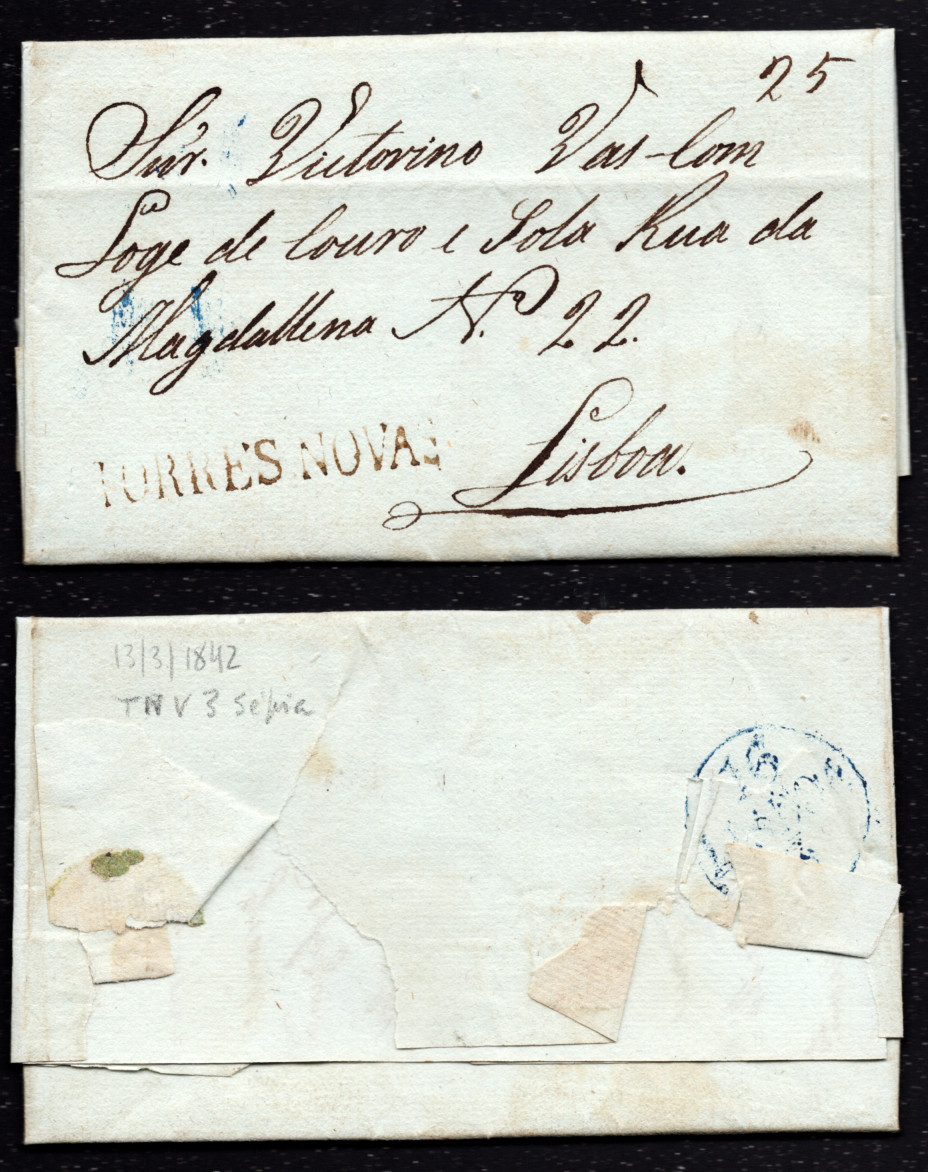 25
Snr. Victorino Vas-Com
Loge de Couro e Sola Rua da
Magdallena No. 22.
Lisboa.
TORRES NOVAS
13/3/1842
TNV 3 Sépia